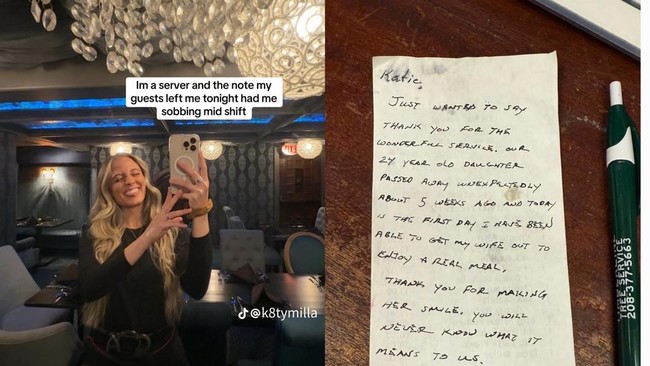 Im a server and the note my
guests left me tonight had me
sobbing mid shift
@k8tymilla
Katie
Just wanted to say
thank you for the
wonderful service. Our
24 year old daughter
passed away unexpectedly
about 5 weeks ago and today
is the first day I have been
able to get my wife out to
enjoy a real meal.
Thank you for making
her smile. You will
never know what it
means to us.
TREE SERVICE
208-377-5663
EXIT